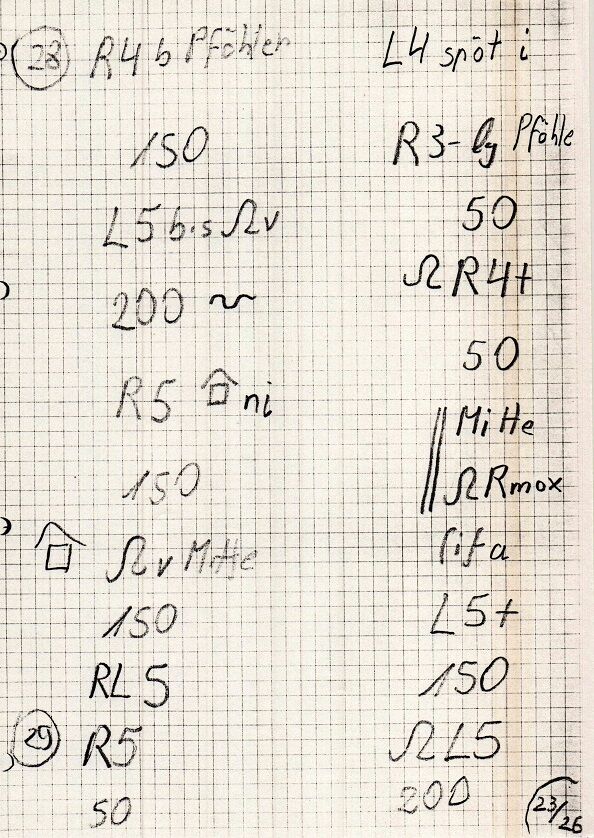 28 R4 b Pfähler
150
L5 bis Ω v
200 ~
R5 ni
150
Ω v Mitte
150
RL 5
29 R5
50
L4 spät i
R3- lg Pfähle
50
Ω R4+
50
Mitte
Ω Rmax
rifa
L5+
150
Ω L5
200
23/26